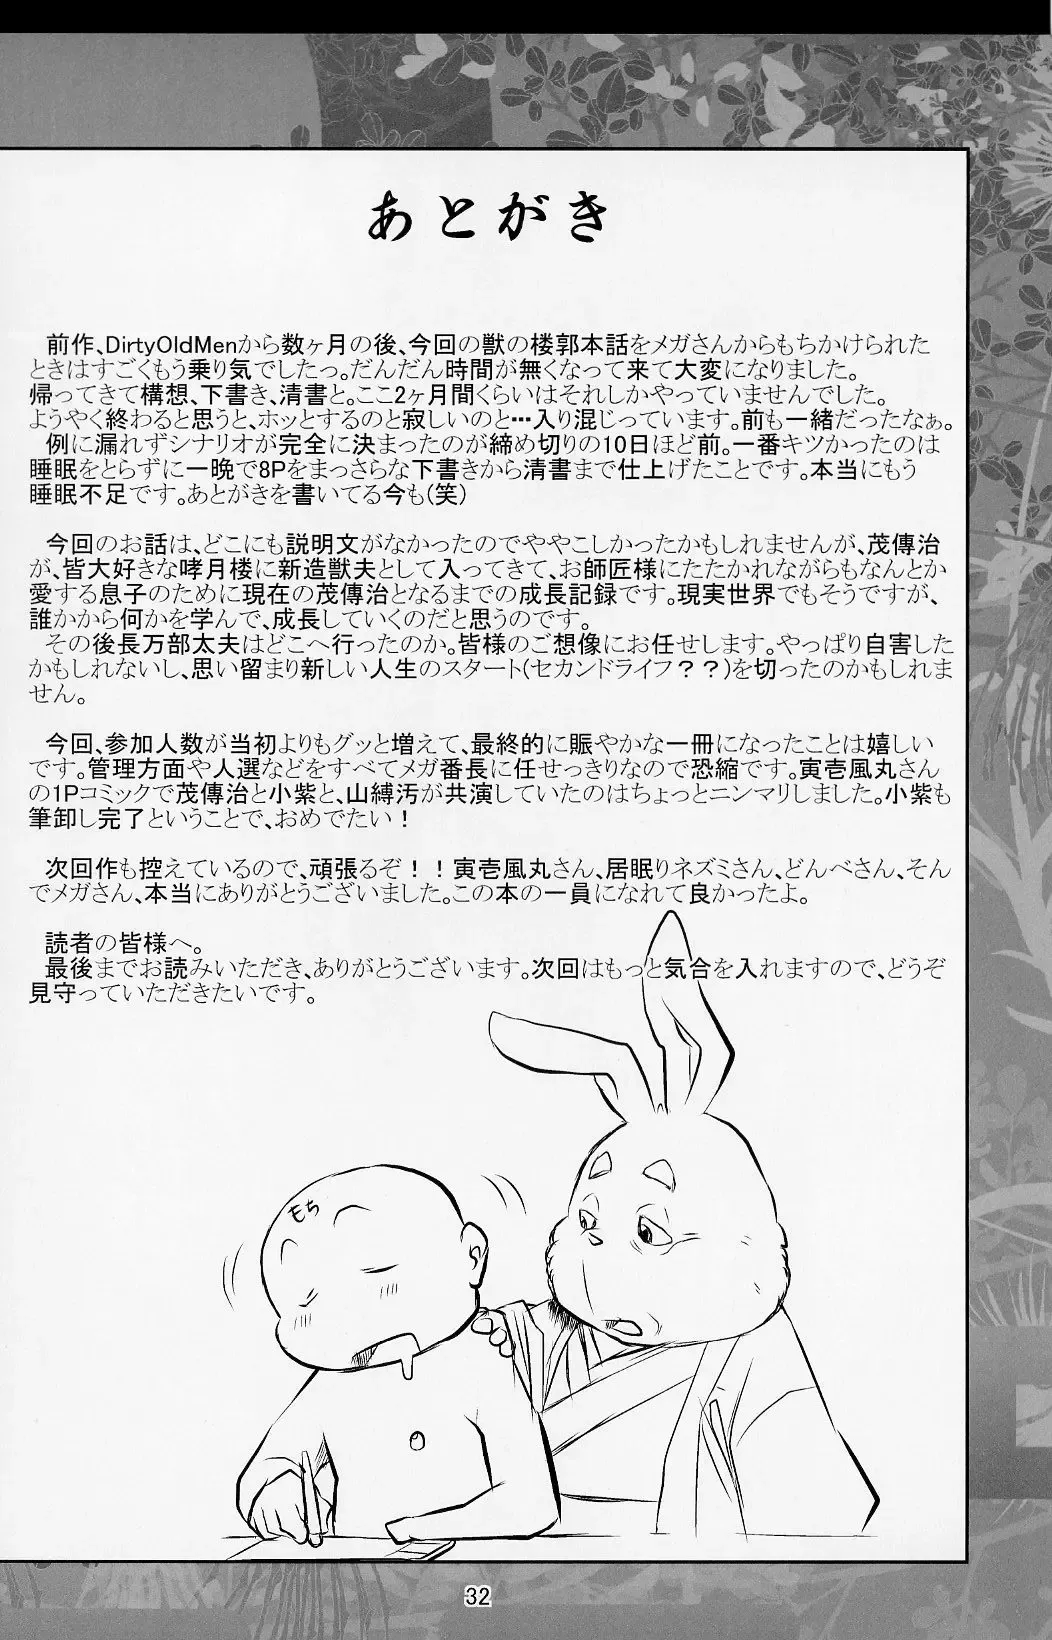 あとがき
前作、DirtyOldMenから数ヶ月の後、今回の獣の楼郭本話をメガさんからもちかけられた
ときはすごくもう乗り気でしたっ。だんだん時間が無くなって来て大変になりました。
帰ってきて構想、下書き、清書と。ここ2ヶ月間くらいはそれしかやっていませんでした。
ようやく終わると思うと、ホッとするのと寂しいのと…入り混じっています。前も一緒だったなぁ。
例に漏れずシナリオが完全に決まったのが締め切りの10日ほど前。一番キツかったのは
睡眠をとらずに一晩で8Pをまっさらな下書きから清書まで仕上げたことです。本当にもう
睡眠不足です。あとがきを書いてる今も(笑)
今回のお話は、どこにも説明文がなかったのでややこしかったかもしれませんが、茂傳治
が、皆大好きな哮月楼に新造獣夫として入ってきて、お師匠様にたたかれながらもなんとか
愛する息子のために現在の茂傳治となるまでの成長記録です。現実世界でもそうですが、
誰かから何かを学んで、成長していくのだと思うのです。
その後長万部太夫はどこへ行ったのか。皆様のご想像にお任せします。やっぱり自害した
かもしれないし、思い留まり新しい人生のスタート(セカンドライフ？？)を切ったのかもしれま
せん。
今回、参加人数が当初よりもグッと増えて、最終的に賑やかな一冊になったことは嬉しい
です。管理方面や人選などをすべてメガ番長に任せっきりなので恐縮です。寅壱風丸さん
の1Pコミックで茂傳治と小紫と、山縛汚が共演していたのはちょっとニンマリしました。小紫も
筆卸し完了ということで、おめでたい！
次回作も控えているので、頑張るぞ！！寅壱風丸さん、居眠りネズミさん、どんべさん、そん
でメガさん、本当にありがとうございました。この本の一員になれて良かったよ。
読者の皆様へ。
最後までお読みいただき、ありがとうございます。次回はもっと気合を入れますので、どうぞ
見守っていただきたいです。
もち
32